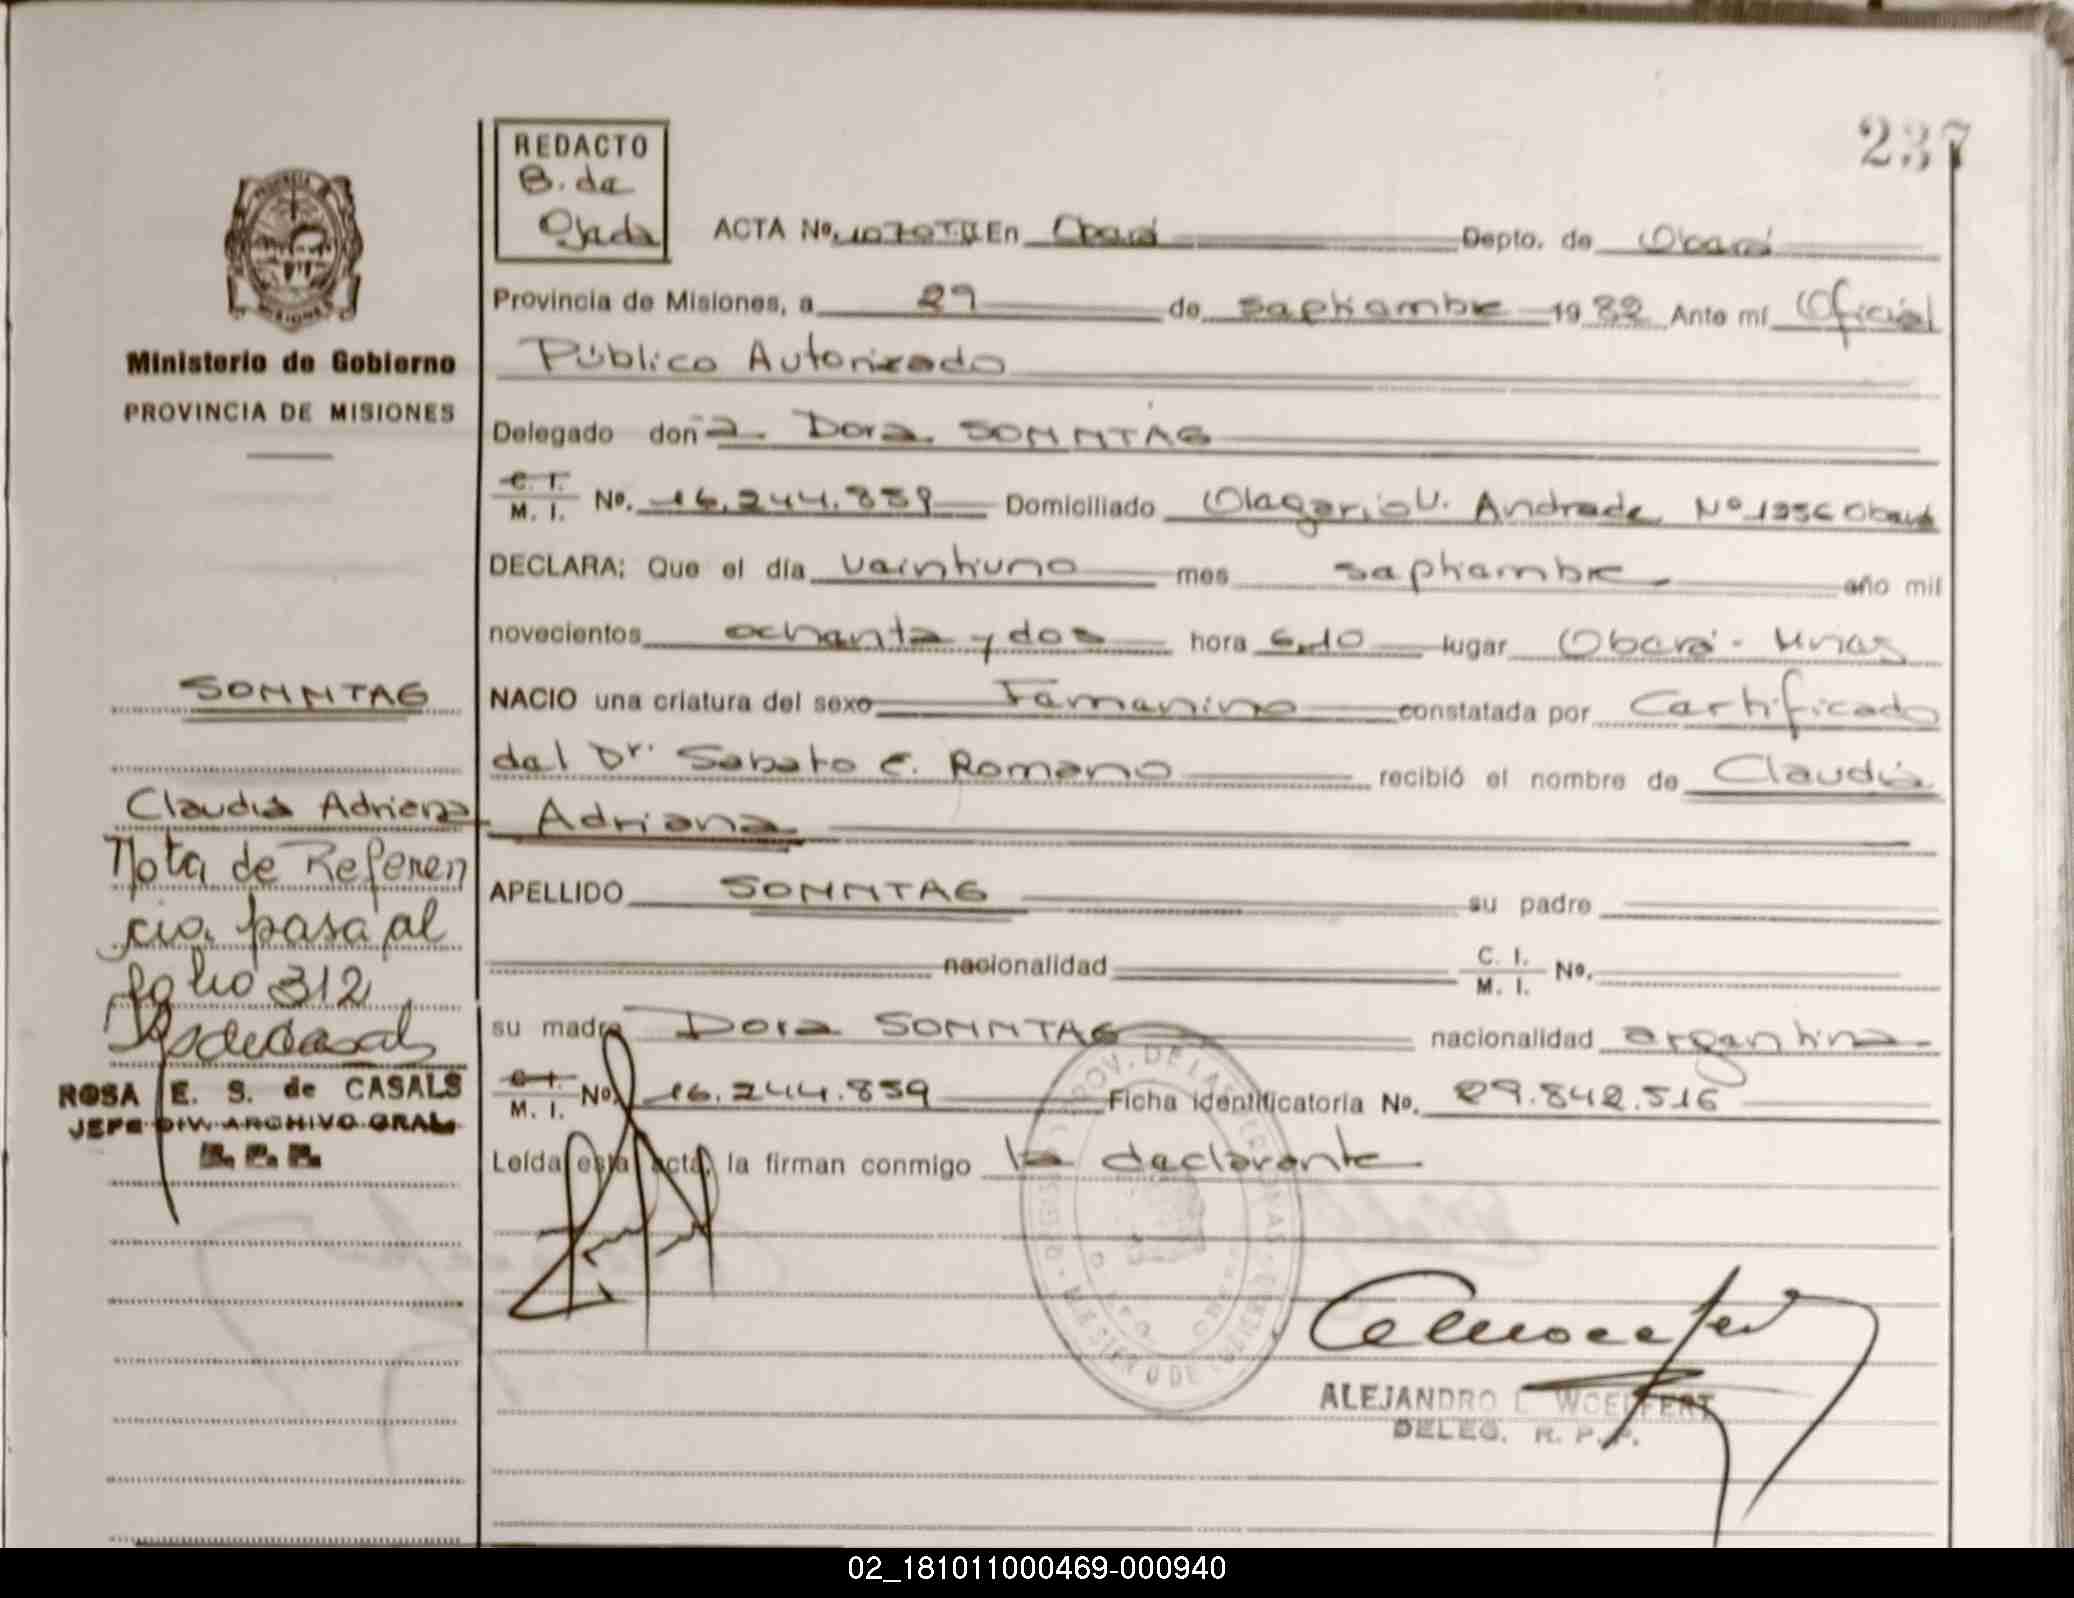 237
REDACTO
B. de
Ojeda
ACTA Nº 1070TII En Oberá Depto. de Oberá
Provincia de Misiones, a 29 de septiembre 1982 Ante mí Oficial
Público Autorizado
Delegado doña Dora SONNTAG
C. I.
M. I. Nº. 16.244.859 Domiciliado Olegario V. Andrade Nº 1256 Oberá
DECLARA: Que el día veintiuno mes septiembre año mil
novecientos ochenta y dos hora 6,10 lugar Oberá - Mnes
NACIO una criatura del sexo Femenino constatada por Certificado
del Dr. Sabato C. Romano recibió el nombre de Claudia
Adriana
APELLIDO SONNTAG su padre
nacionalidad C. I.
M. I. Nº.
su madre Dora SONNTAG nacionalidad argentina
C. I.
M. I. Nº. 16.244.859 Ficha identificatoria No. 29.842.516
Leída esta acta, la firman conmigo la declarante
ALEJANDRO L. WOELFERT
DELEG. R. P. P.
Ministerio de Gobierno
PROVINCIA DE MISIONES
SONNTAG
Claudia Adriana
Nota de Referen
cia pasa al
folio 312
ROSA E. S. de CASALS
JEFE DIV. ARCHIVO GRAL.
R. P. P.
02_181011000469-000940